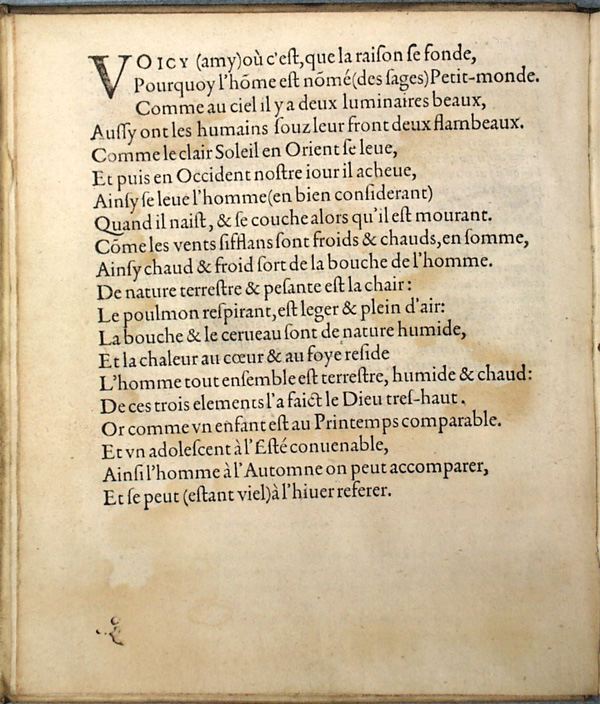 VOICY (amy) où c'eſt, que la raiſon ſe fonde,
Pourquoy l'hõme eſt nõmé (des ſages) Petit-monde.
Comme au ciel il y a deux luminaires beaux,
Auſſy ont les humains ſouz leur front deux flambeaux.
Comme le clair Soleil en Orient ſe leue,
Et puis en Occident noſtre iour il acheue,
Ainſy ſe leue l'homme (en bien conſiderant)
Quand il naiſt, & ſe couche alors qu'il eſt mourant.
Cõme les vents ſifflans ſont froids & chauds, en ſomme,
Ainſy chaud & froid ſort de la bouche de l'homme.
De nature terreſtre & peſante eſt la chair:
Le poulmon reſpirant, eſt leger & plein d'air:
La bouche & le cerueau ſont de nature humide,
Et la chaleur au cœur & au foye reſide
L'homme tout enſemble eſt terreſtre, humide & chaud:
De ces trois elements l'a faict le Dieu treſ-haut.
Or comme vn enfant eſt au Printemps comparable.
Et vn adoleſcent à l'Eſté conuenable,
Ainſi l'homme à l'Automne on peut accomparer,
Et ſe peut (eſtant viel) à l'hiuer referer.